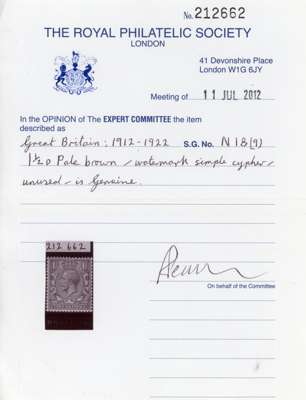 No. 212662
THE ROYAL PHILATELIC SOCIETY
LONDON
41 Devonshire Place
London W1G 6JY
Meeting of 11 JUL 2012
In the OPINION of The EXPERT COMMITTEE the item
described as
Great Britain: 1912-1922 S.G. No. N18(9)
1½d Pale brown, watermark simple cypher,
unused, is Genuine.
212 662
On behalf of the Committee